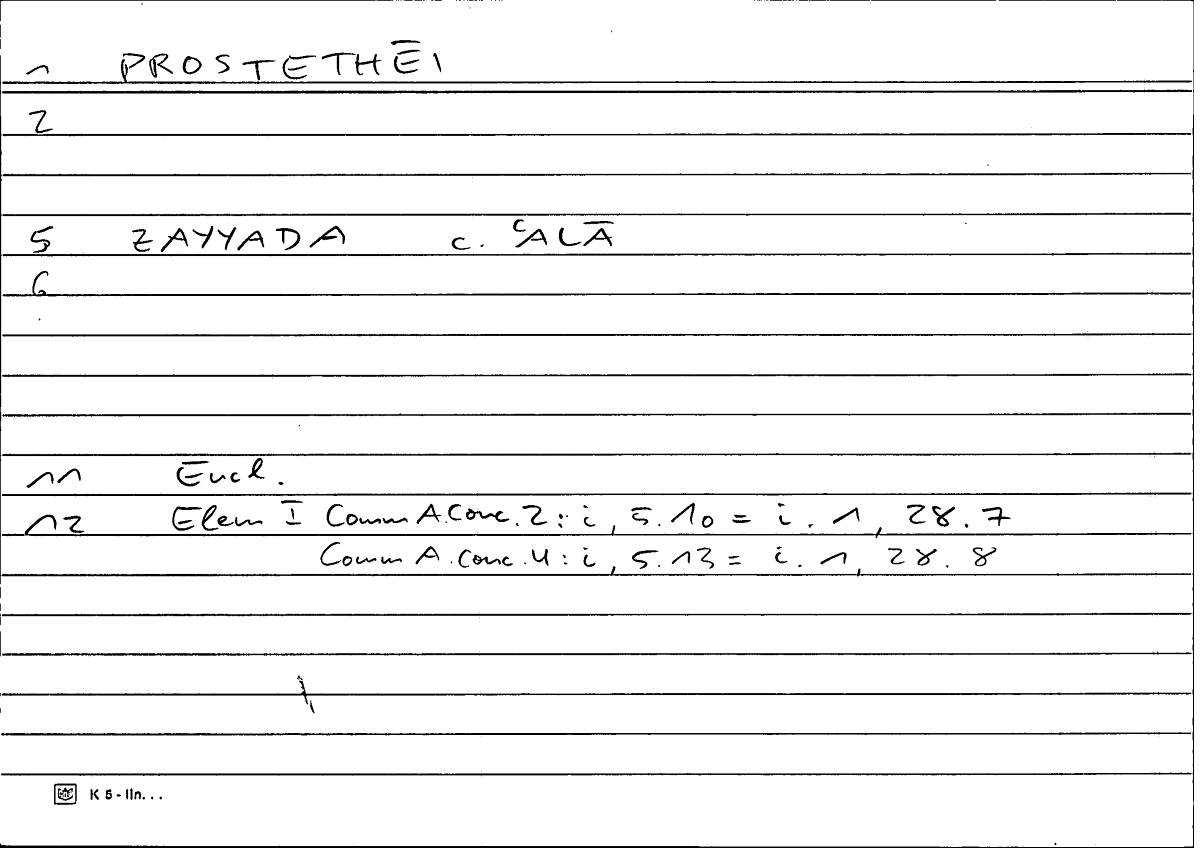 1 PROSTETHĒI
2
5 ZAYYADA c. ʿALĀ
6
11 Eucl.
12 Elem I Comm A.Conc. 2: i, 5.10 = i. 1, 28.7
Comm A.Conc. 4: i, 5.13 = i. 1, 28.8
K 5 - lln...